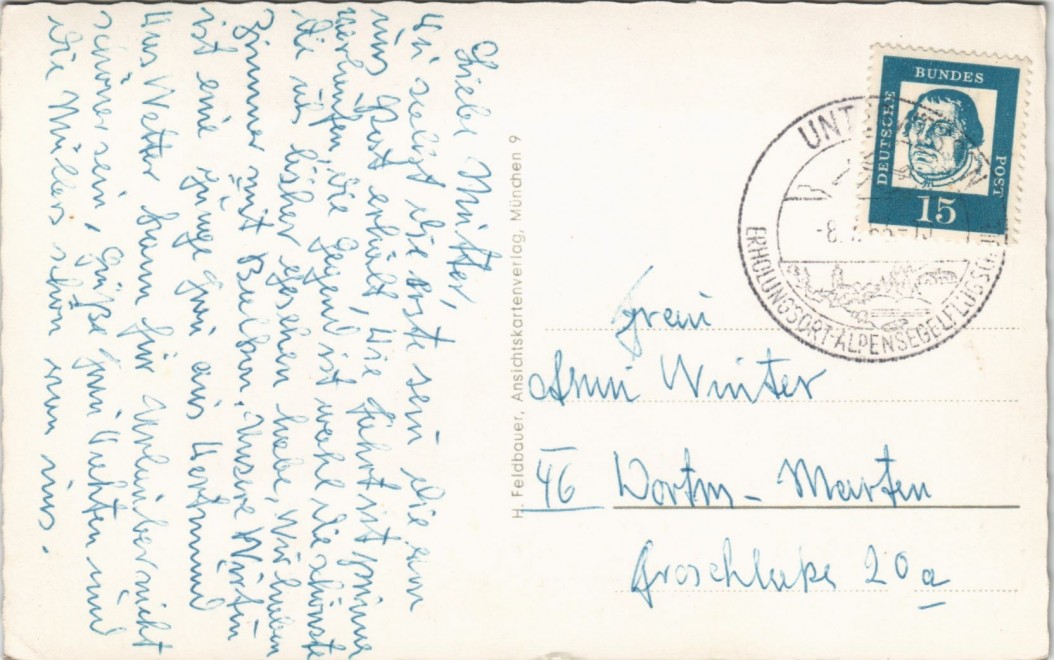 Liebe Mutter,
Du sollst die erste sein die von
uns Post erhält, die Fahrt ist prima
verlaufen, die Gegend ist wohl die schönste
die ich bisher gesehen habe, Wir haben
Zimmer mit Balkon. Unsere Wirtin
ist eine junge Frau aus Dortmund
Das Wetter kann für Urlauber nicht
schöner sein, Grüße und
die Müllers schön von uns.
H. Feldbauer, Ansichtskartenverlag, München 9
DEUTSCHE BUNDES POST
15
-8.
ERHOLUNGSORT-ALPENSEGELFLUGSCH
Frau
Anni Winter
46 Dortm - Marten
Groschlake 20a